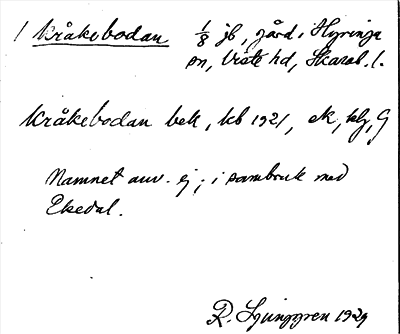 1 Kråkebodan 1/8 jb, gård i Hyringa
sn, Viste hd, Skarab. l.
Kråkebodan bek, kb 1921, ek, hlz, G
Namnet anv. ej; i sambruk med
Ekedal.
R. Ljunggren 1929